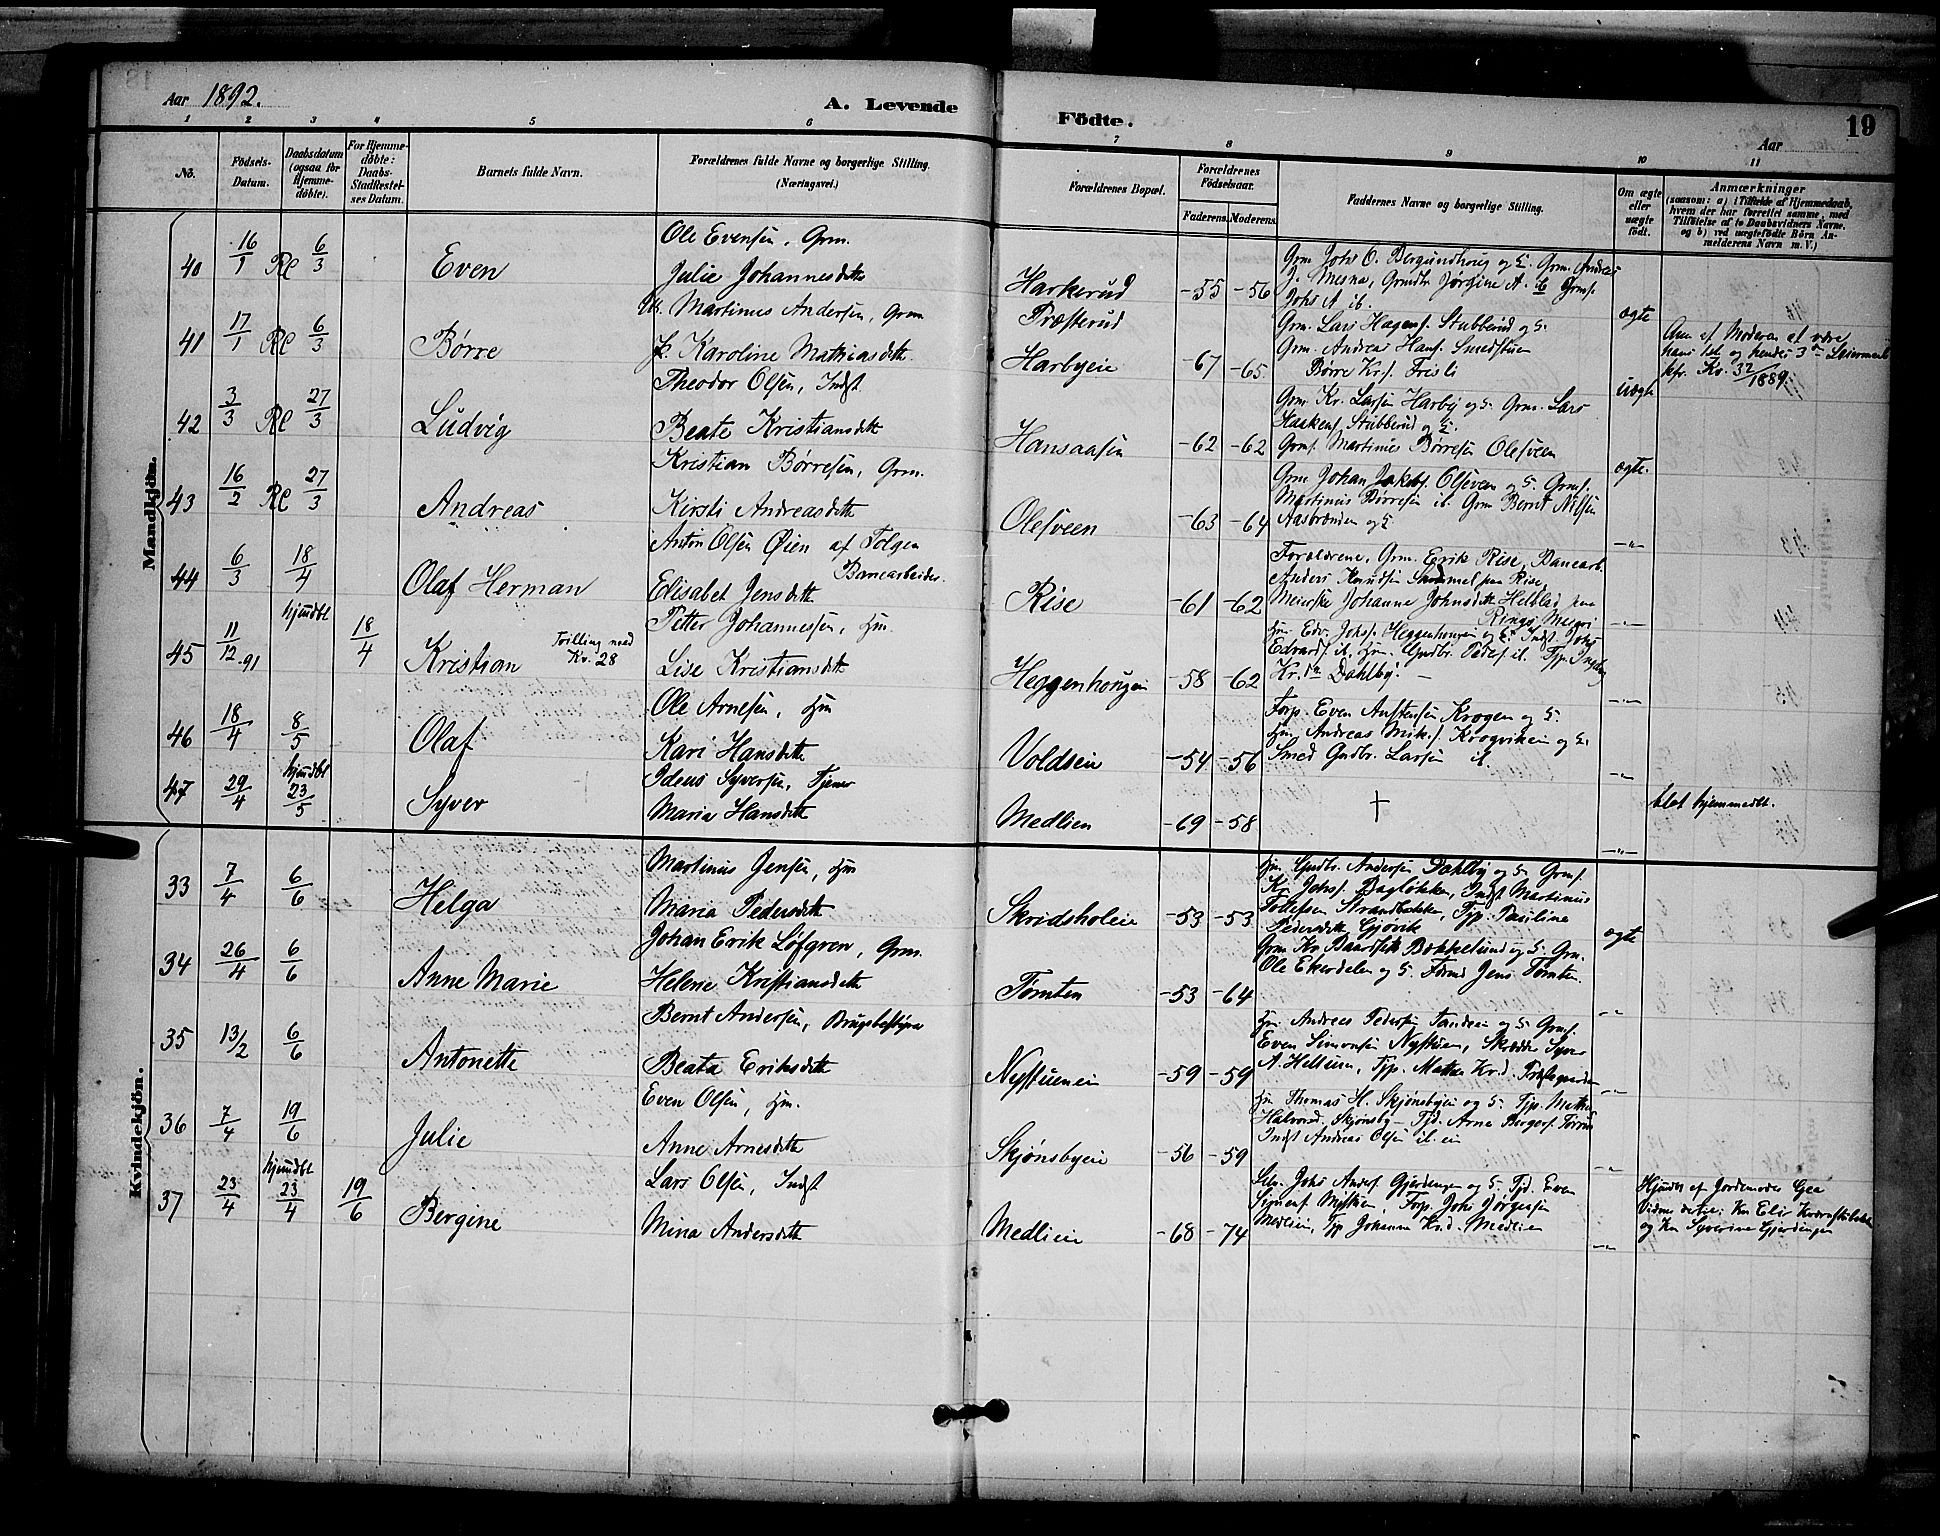 Aar 1892.
A. Levende
Födte.
Aar
19
1 2 3 4 5 6 7 8 9 10 11
No.
Födsels-
Datum.
Daabsdatum
(ogsaa for
Hjemme-
döbte).
For Hjemme-
döbte:
Daabs-
Stadfæstel-
ses Datum.
Barnets fulde Navn.
Forældrenes fulde Navne og borgerlige Stilling.
(Næringsvei.)
Forældrenes Bopæl.
Forældrenes
Födselsaar.
Faderens. Moderens.
Faddernes Navne og borgerlige Stilling.
Om ægte
eller
uægte
födt.
Anmærkninger
(saasom: a) i Tilfælde af Hjemmedaab,
hvem der har forrettet samme, med
Tilföielse af to Daabsvidners Navne,
og b) ved uægtefödte Börn An-
melderens Navn m. V.)
Mandkjön.
40 16/1 Rl 6/3 Even
Ole Evensen, Grm.
Julie Johannesdttr
Harkerud -55 -56
Grm. Johs O. Bergundhoug og H. Grm. Andreas
J. Mesna, Grmdtr Jørgine A. ib Grms.
Johs A ib.
ægte
41 17/1 Rl 6/3 Børre
Uk. Martinus Andersen, Grm
P. Karoline Mathiasdttr.
Præsterud
Harbyeie -67 -65
Grm. Lars Hagens. Stubberud og H.
Grm. Andreas Hans. Smedstuen
Børre Kr.s. Frisli
uægte
Anm. af Moderen at være
hans 1st og hendes 3die Leiermaal
kfr. Kv. 32/1889.
42 3/3 Rl 27/3 Ludvig
Theodor Olsen, Indst
Beate Kristiansdttr
Hansaasen -62 -62
Grm. Kr. Larsen Harby og H. Grm. Lars
Haakens. Stubberud og H.
Grms. Martinus Børresen Olesveen
ægte.
43 16/2 Rl 27/3 Andreas
Kristian Børresen, Grm.
Kirsti Andreasdttr
Olesveen -63 -64
Grm Johan Jakobs. Olesveen og H. Grms.
Martinus Børresen ib. Grm Bernt Nilsen
Aasbrænden og H.
-"-
44 6/3 18/4 Olaf Herman
Anton Olsen Øien af Tolgen
Banearbeider.
Elisabet Jensdttr
Rise -61 -62
Forældrene, Grm. Erik Rise, Banearb.
Anders Knudsen Sammel paa Rise,
Meierske Johanne Johnsdttr Helblad paa
Rings. Meieri
-"-
45 11/12-91 hjmdbt 18/4 Kristian Tvilling med
Kv. 28
Petter Johannessen, Hm.
Lise Kristiansdttr
Heggenhougen -58 -62
Hm. Edv. Johs. Heggenhougen og H. Indst Johs
Edvards. ib. Hm. Gudbr. Peders. ib. Tjp. Ingeborg
Kr.dtr Dahlby.
-"-
46 18/4 8/5 Olaf
Ole Arnesen, Hm
Kari Hansdttr
Voldseie -54 -56
Forp. Even Austensen Krogen og H.
Hm. Andreas Mik.s. Krogvikeie og H.
Smed Gudbr. Larsen ib.
-"-
47 29/4 hjmdbt 23/5 Syver
Edeus Syversen, Tjener
Maria Hansdttr
Medlien -69 -58
+
-"-
blot hjemmedbt.
Kvindekjön.
33 7/4 6/6 Helga
Martinus Jensen, Hm
Maria Pedersdttr
Skridsholeie -53 -53
Hm. Gudbr. Andersen Dahlby og H. Grms.
Kr. Johs. Bagløkken, Indst Martinus
Tollefsen Strandbakken, Tjp. Pauline
Pedersdttr Gjøvik
ægte
34 26/4 6/6 Anne Marie
Johan Erik Løfgren, Grm.
Helene Kristiansdttr
Tomten -53 -64
Grm Kr. Baardseth Bækkelund og H. Grm.
Ole Ekerdelen og H. Formd Jens Tomten.
-"-
35 13/2 6/6 Antonette
Bernt Andersen, Brugsbestyrer
Beata Eriksdttr
Nystueneie -59 -59
Hm. Andreas Pedersen Sandeeie og H. Grms.
Even Simonsen Nystuen, Skrædder Syver
A. Helleeie, Tjp. Mathea Kr.d. Præstegaarden
-"-
36 7/4 19/6 Julie
Even Olsen, Hm.
Anne Arnesdttr
Skjønsbyeie -56 -59
Hm Thomas H. Skjønsbyeie og H. Tjp. Mathea
Halvorsd. Skjønsby - Tjd. Arne Birgers. Torrud
Indst Andreas Olsen ib. eie
-"-
37 23/4 hjmdbt 23/4 19/6 Bergine
Lars Olsen, Indst
Mina Andersdttr
Medlien -68 -74
Selv. Johs Anders. Gjerdingen og H. Tjd. Even
Simens. Nystuen, Forp. Johs Jørgensen
Medlien, Tjp Johanne Kr.d. Medlien
-"-
Hjmdbt af Jordemoder Gea
Vidner dertil: Kn Elie Kværnstubakk
og Kn Syverine Gjerdingen